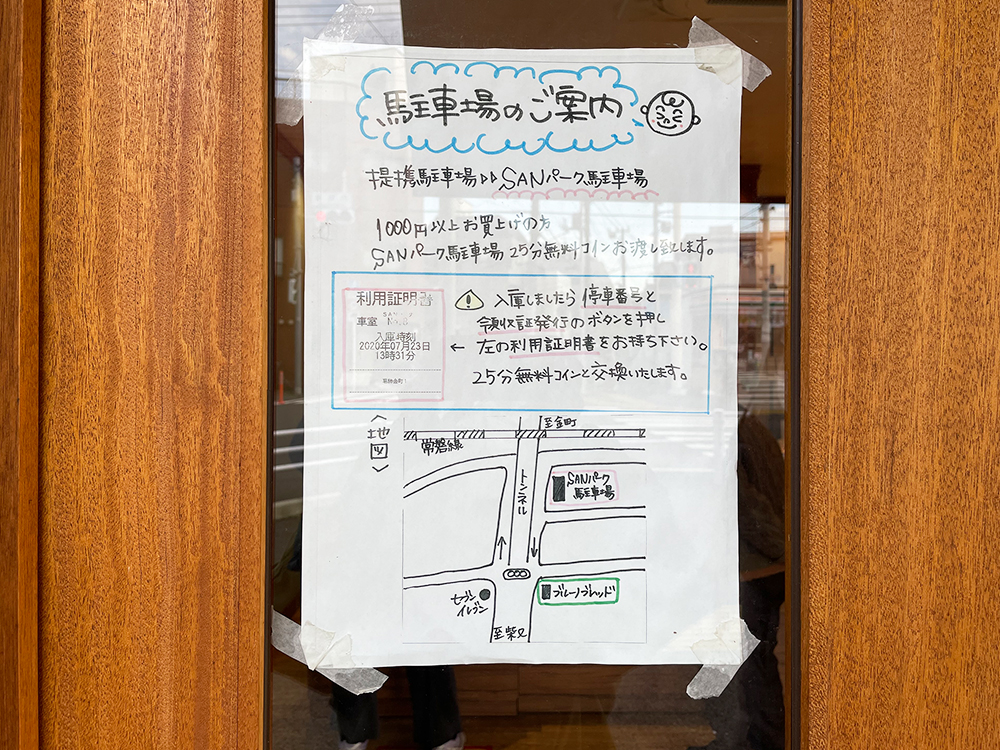 駐車場のご案内
提携駐車場▷▷SANパーク駐車場
1000円以上お買上げの方
SANパーク駐車場25分無料コインお渡し致します。
利用証明書
車室 No.
入庫時刻
2020年07月23日
13時31分
入庫しましたら停車番号と
領収証発行のボタンを押し
← 左の利用証明書をお持ち下さい。
25分無料コインと交換いたします。
地図
至金町
常磐線
トンネル
SANパーク
駐車場
セブン
イレブン
ブルーノブレッド
至柴又